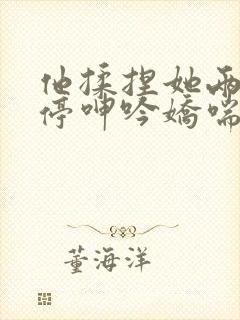 他揉捏她两
停呻吟娇喘
董海洋